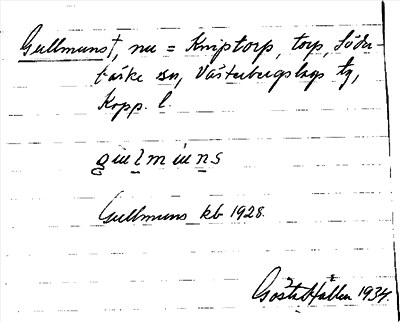 Gullmuns†, nu = Kniptorp, torp, Söder-
bärke sn, Västerbergslags tg,
Kopp. l.
gulmuns
Gullmuns kb 1928.
Gösta Hallén 1934.